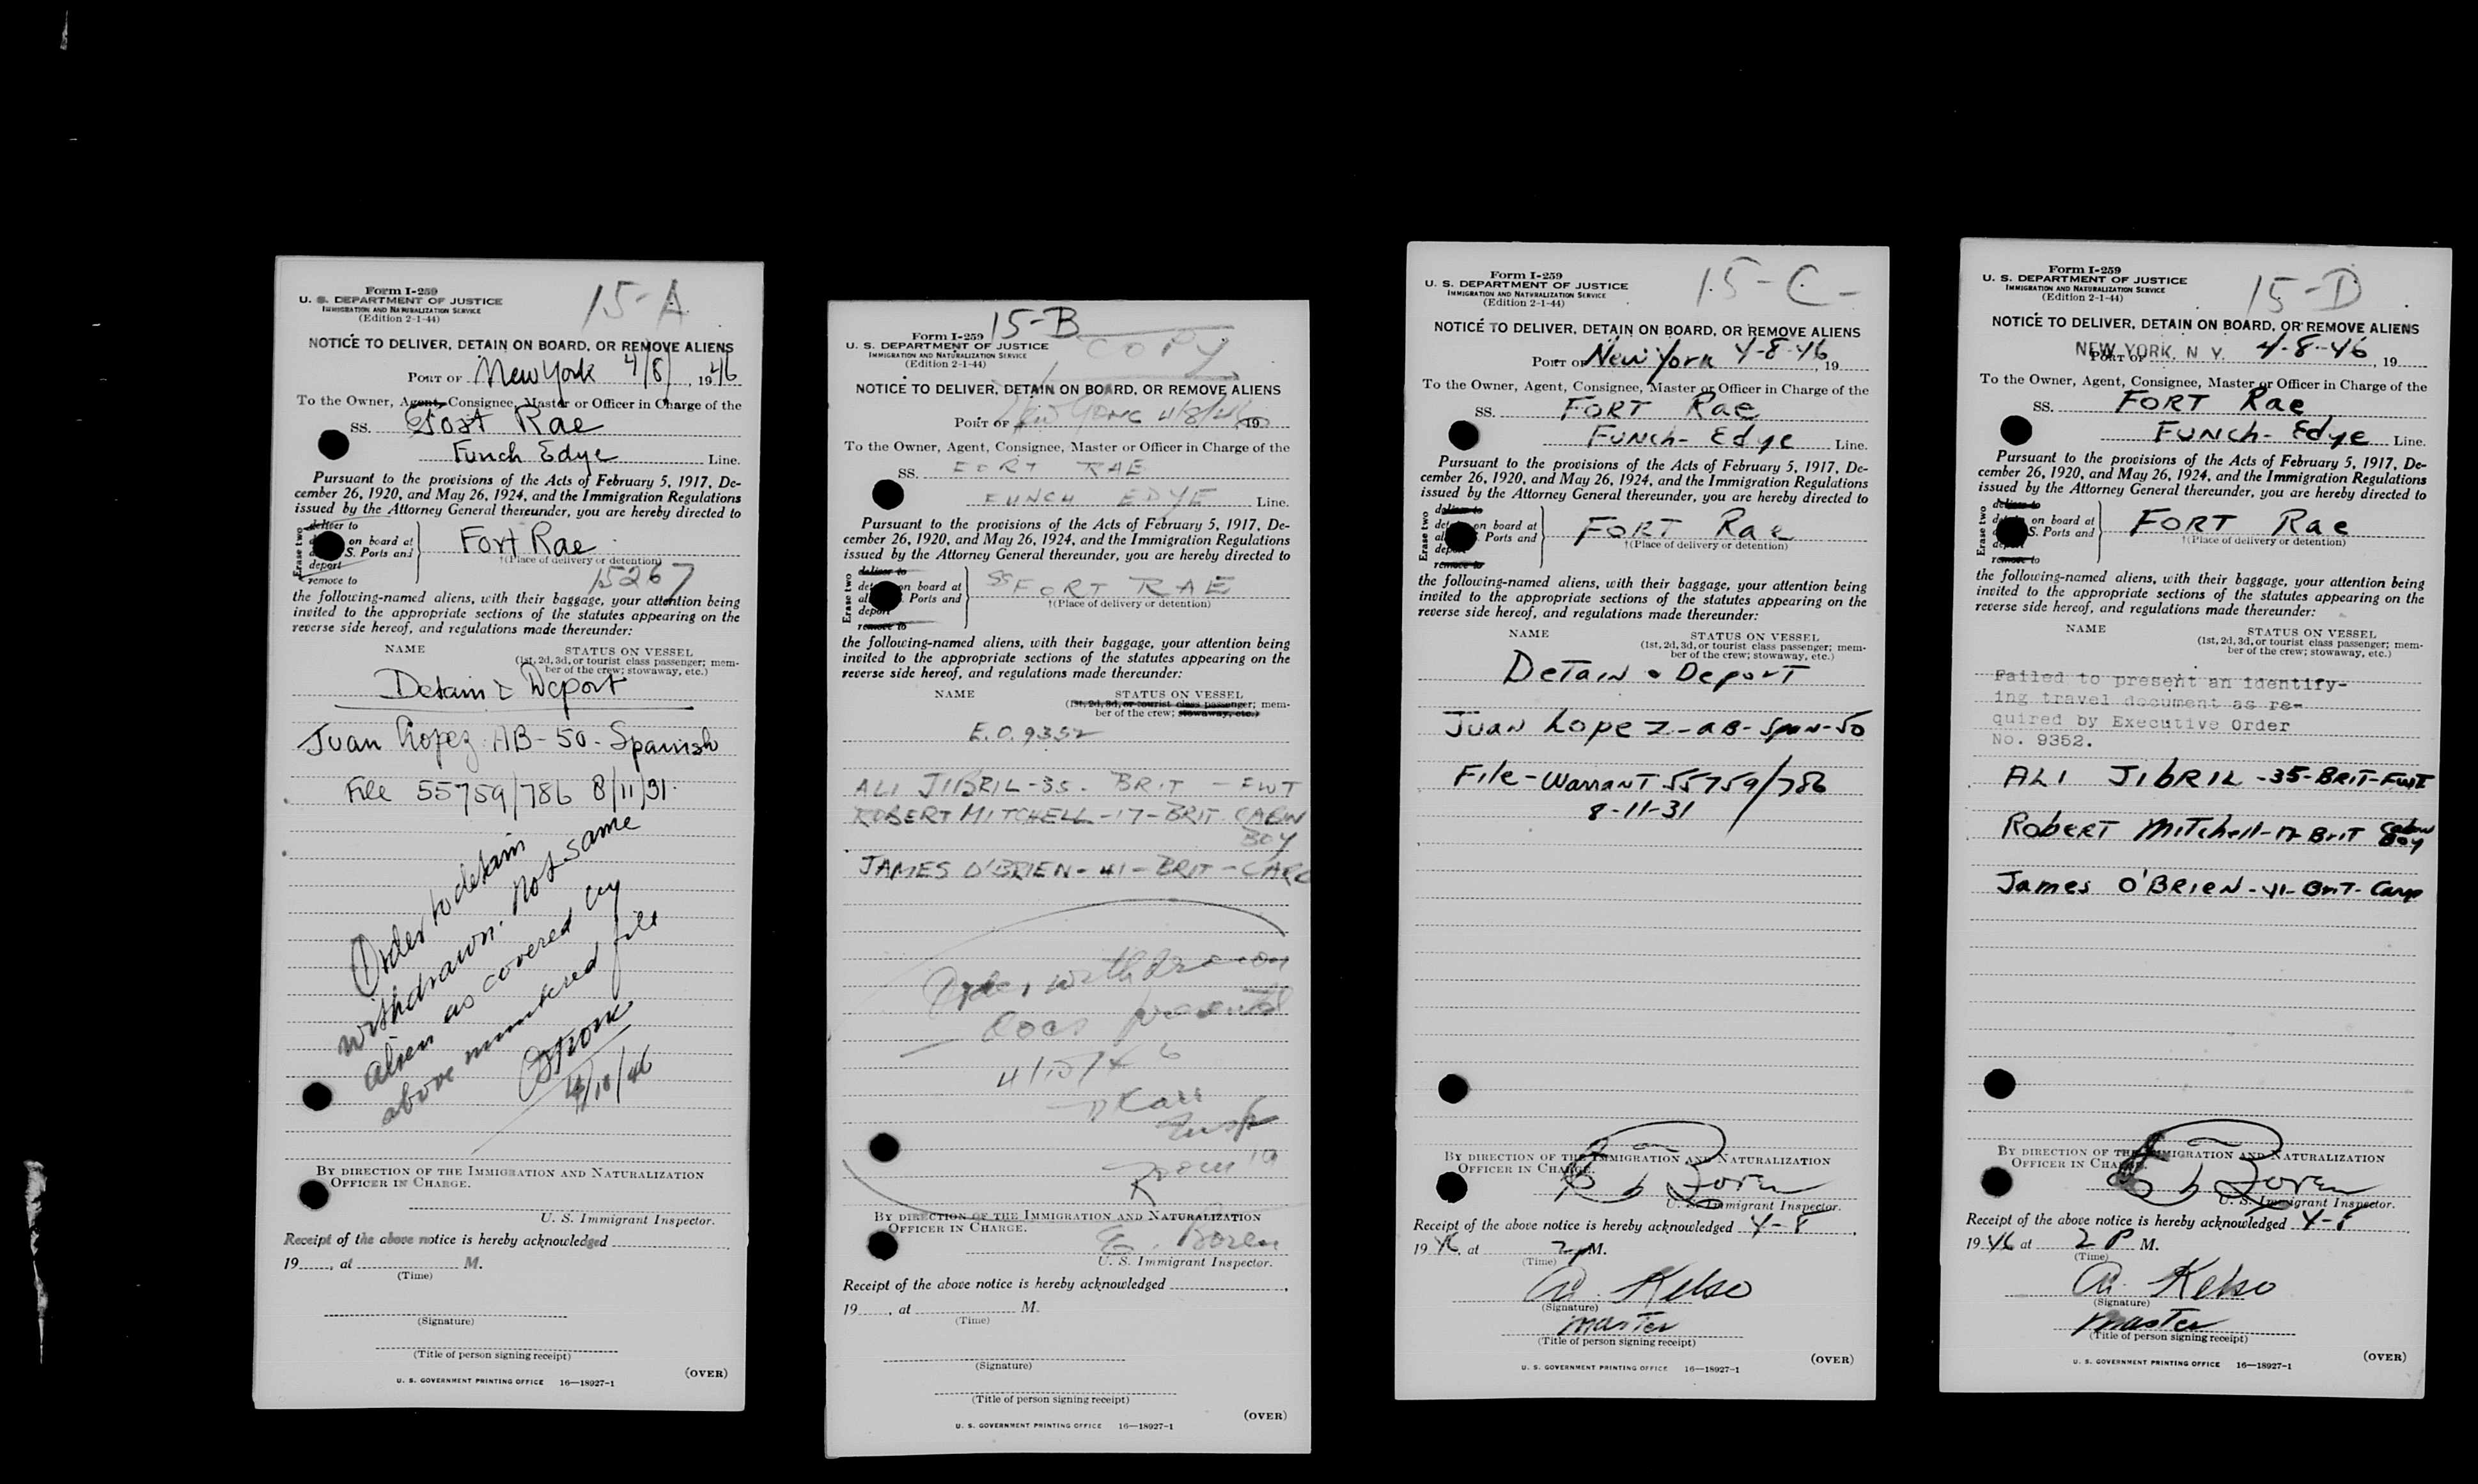 15-A
Form I-259
U. S. DEPARTMENT OF JUSTICE
IMMIGRATION AND NATURALIZATION SERVICE
(Edition 2-1-44)
NOTICE TO DELIVER, DETAIN ON BOARD, OR REMOVE ALIENS
PORT OF New York 4/8/, 1946
To the Owner, Agent, Consignee, Master or Officer in Charge of the
SS. Fort Rae
Funch Edye Line.
Pursuant to the provisions of the Acts of February 5, 1917, De-
cember 26, 1920, and May 26, 1924, and the Immigration Regulations
issued by the Attorney General thereunder, you are hereby directed to
Erase two
deliver to
on board at
S. Ports and
deport
remove to
Fort Rae
†(Place of delivery or detention)
15267
the following-named aliens, with their baggage, your attention being
invited to the appropriate sections of the statutes appearing on the
reverse side hereof, and regulations made thereunder:
NAME STATUS ON VESSEL
(1st, 2d, 3d, or tourist class passenger; mem-
ber of the crew; stowaway, etc.)
Detain & Deport
Juan Lopez AB-50-Spanish
File 55759/786 8/11/31.
Order to detain
withdrawn. Not same
alien as covered by
above numbered file
4/10/46
BY DIRECTION OF THE IMMIGRATION AND NATURALIZATION
OFFICER IN CHARGE.
U. S. Immigrant Inspector.
Receipt of the above notice is hereby acknowledged
19, at M.
(Time)
(Signature)
(Title of person signing receipt)
(OVER)
U. S. GOVERNMENT PRINTING OFFICE 16—18927-1
15-B
COPY
Form I-259
U. S. DEPARTMENT OF JUSTICE
IMMIGRATION AND NATURALIZATION SERVICE
(Edition 2-1-44)
NOTICE TO DELIVER, DETAIN ON BOARD, OR REMOVE ALIENS
PORT OF New York 4/8/46 19
To the Owner, Agent, Consignee, Master or Officer in Charge of the
SS. FORT RAE
FUNCH EDYE Line.
Pursuant to the provisions of the Acts of February 5, 1917, De-
cember 26, 1920, and May 26, 1924, and the Immigration Regulations
issued by the Attorney General thereunder, you are hereby directed to
Erase two
deliver to
on board at
Ports and
deport
remove to
SS FORT RAE
†(Place of delivery or detention)
the following-named aliens, with their baggage, your attention being
invited to the appropriate sections of the statutes appearing on the
reverse side hereof, and regulations made thereunder:
NAME STATUS ON VESSEL
(1st, 2d, 3d, or tourist class passenger; mem-
ber of the crew; stowaway, etc.)
E.O. 9352
ALI JIBRIL-35. BRIT - FWT
ROBERT MITCHELL-17-BRIT. CABIN
BOY
JAMES O'BRIEN-41-BRIT-CARP
Order withdrawn
Docs presented
4/10/46
Insp
E. Boren
BY DIRECTION OF THE IMMIGRATION AND NATURALIZATION
OFFICER IN CHARGE.
U. S. Immigrant Inspector.
Receipt of the above notice is hereby acknowledged
19, at M.
(Time)
(Signature)
(Title of person signing receipt)
(OVER)
U. S. GOVERNMENT PRINTING OFFICE 16—18927-1
15-C-
Form I-259
U. S. DEPARTMENT OF JUSTICE
IMMIGRATION AND NATURALIZATION SERVICE
(Edition 2-1-44)
NOTICE TO DELIVER, DETAIN ON BOARD, OR REMOVE ALIENS
PORT OF New York 4-8-46, 19
To the Owner, Agent, Consignee, Master or Officer in Charge of the
SS. FORT Rae
FUNCH-Edye Line.
Pursuant to the provisions of the Acts of February 5, 1917, De-
cember 26, 1920, and May 26, 1924, and the Immigration Regulations
issued by the Attorney General thereunder, you are hereby directed to
Erase two
deliver to
on board at
Ports and
deport
remove to
FORT Rae
†(Place of delivery or detention)
the following-named aliens, with their baggage, your attention being
invited to the appropriate sections of the statutes appearing on the
reverse side hereof, and regulations made thereunder:
NAME STATUS ON VESSEL
(1st, 2d, 3d, or tourist class passenger; mem-
ber of the crew; stowaway, etc.)
DeTaIN & DeporT
Juan Lopez-aB-SpaN-50
File-WarranT 55759/786
8-11-31
BY DIRECTION OF THE IMMIGRATION AND NATURALIZATION
OFFICER IN CHARGE.
Boren
U. S. Immigrant Inspector.
Receipt of the above notice is hereby acknowledged 4-8
1946, at 2 P M.
(Time)
A. Kelso
(Signature)
master
(Title of person signing receipt)
(OVER)
U. S. GOVERNMENT PRINTING OFFICE 16—18927-1
15-D
Form I-259
U. S. DEPARTMENT OF JUSTICE
IMMIGRATION AND NATURALIZATION SERVICE
(Edition 2-1-44)
NOTICE TO DELIVER, DETAIN ON BOARD, OR REMOVE ALIENS
PORT OF NEW YORK, N. Y. 4-8-46, 19
To the Owner, Agent, Consignee, Master or Officer in Charge of the
SS. FORT Rae
FUNCH-Edye Line.
Pursuant to the provisions of the Acts of February 5, 1917, De-
cember 26, 1920, and May 26, 1924, and the Immigration Regulations
issued by the Attorney General thereunder, you are hereby directed to
Erase two
deliver to
on board at
S. Ports and
deport
remove to
FORT Rae
†(Place of delivery or detention)
the following-named aliens, with their baggage, your attention being
invited to the appropriate sections of the statutes appearing on the
reverse side hereof, and regulations made thereunder:
NAME STATUS ON VESSEL
(1st, 2d, 3d, or tourist class passenger; mem-
ber of the crew; stowaway, etc.)
Failed to present an identify-
ing travel document as re-
quired by Executive Order
No. 9352.
ALI JIbRIL-35-BRIT-FWT
RobeRT MITchell-17 BrIT Cabin
Boy
James O'BRIeN-41-BRIT-Carp
BY DIRECTION OF THE IMMIGRATION AND NATURALIZATION
OFFICER IN CHARGE.
Boren
U. S. Immigrant Inspector.
Receipt of the above notice is hereby acknowledged 4-8
1946 at 2 P M.
(Time)
A. Kelso
(Signature)
master
(Title of person signing receipt)
(OVER)
U. S. GOVERNMENT PRINTING OFFICE 16—18927-1